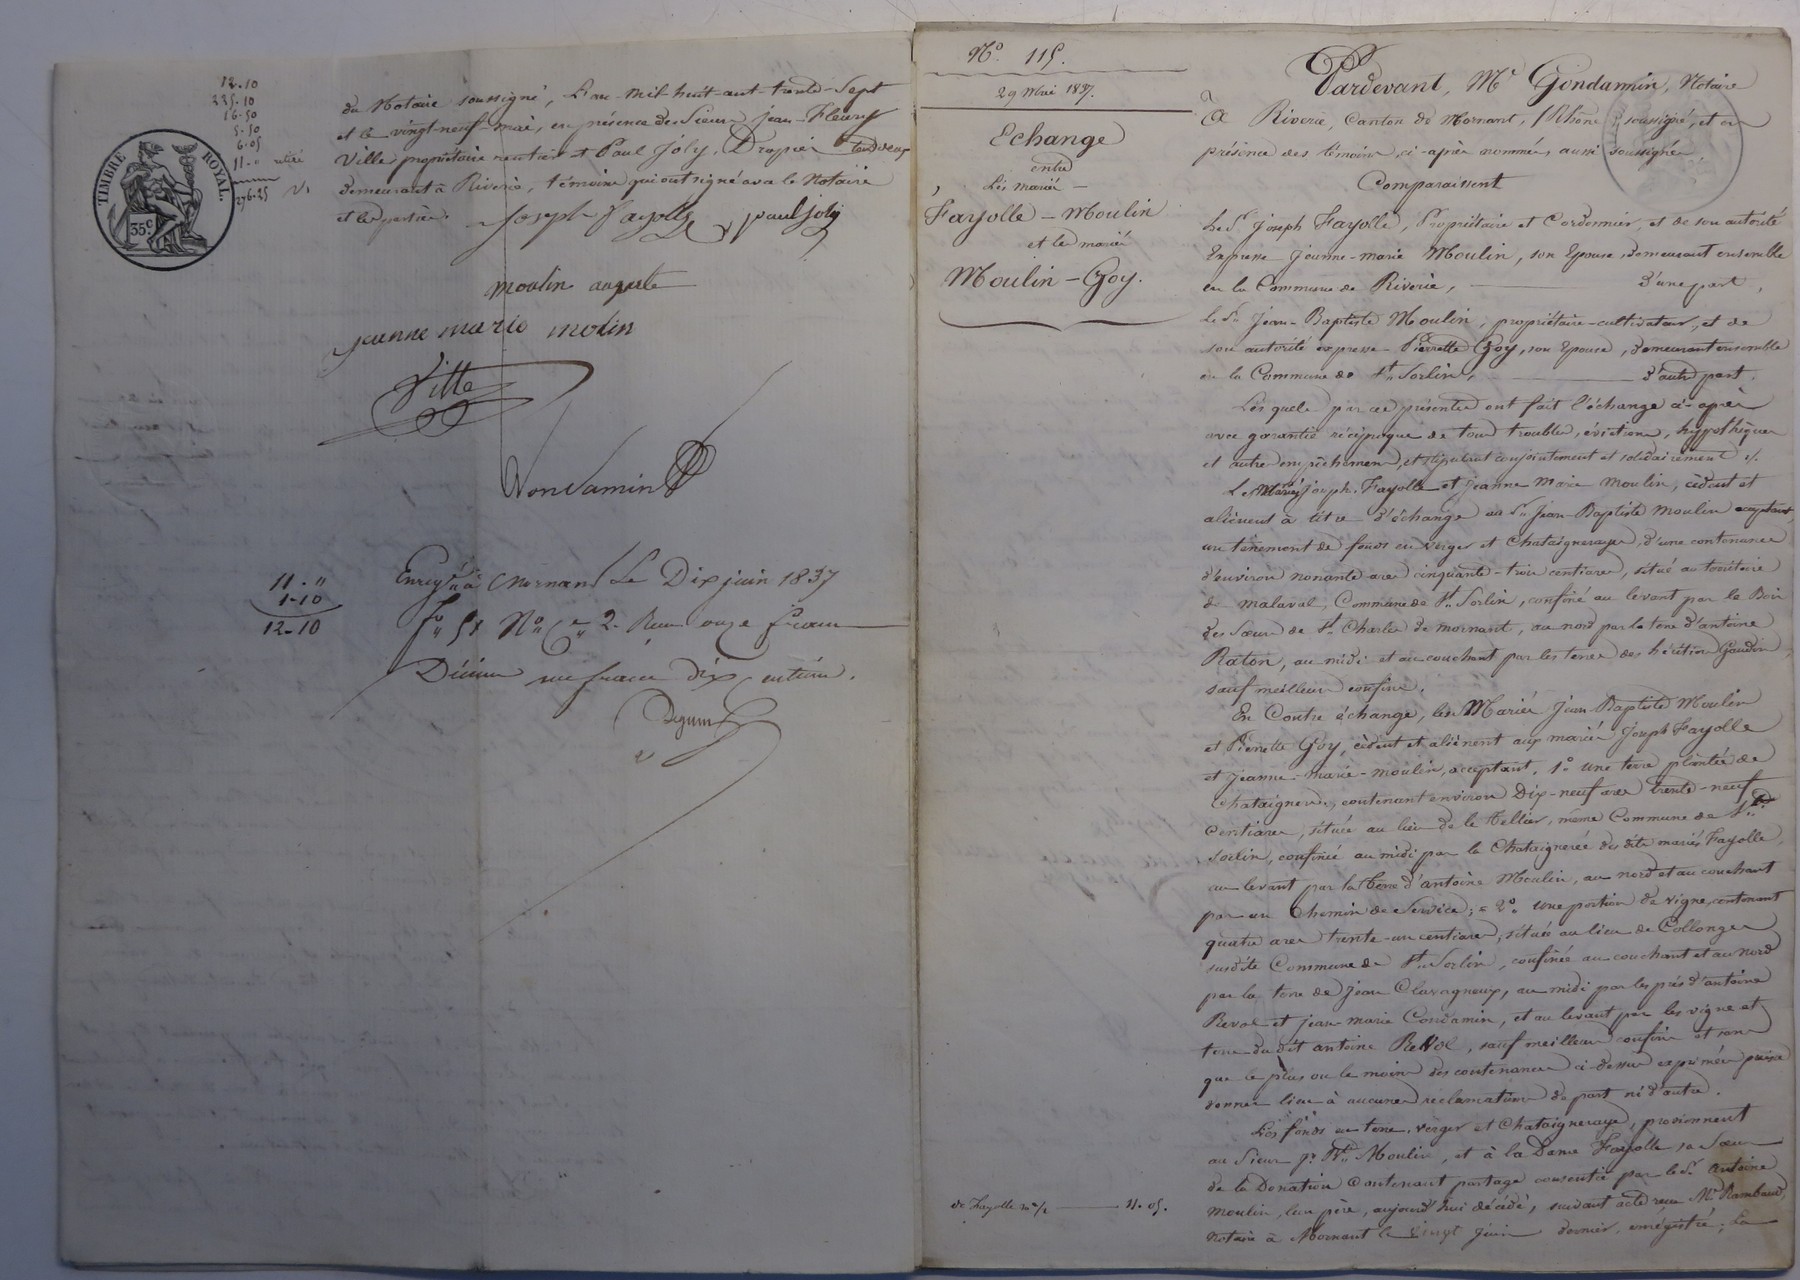 12-10
225-10
16-50
5-50
6-05
11-0
276-25
TIMBRE ROYAL
35c
du Notaire soussigné, L'an mil huit-cent-trente-Sept
et le vingt-neuf-mai, en présence des Sieurs jean-Fleury
Ville propriétaire rentier et Paul Joly, Drapier tous deux
demeurant à Riverie, témoins qui ont signé avec le Notaire
et les parties.
Joseph Fayolle paul joly
moulin auguste
jeanne marie molin
Ville
Condamin
11-"
1-10
12-10
Enregtré à Mornant Le Dix juin 1837
fo 58 No Ce 2. Reçu onze francs
Décime un franc dix centimes.
No. 115.
29 Mai 1837.
Echange
entre
Les mariés
Fayolle - Moulin
et les mariés
Moulin - Goy.
de Fayolle 11.05.
Pardevant, Me Condamin, Notaire
à Riverie, Canton de Mornant, (Rhône) soussigné, et en
présence des témoins ci-après nommés, aussi soussignés
Comparaissent
Le Sr Joseph Fayolle, Propriétaire et Cordonnier, et de son autorité
Expresse Jeanne-marie Moulin, son Epouse, demeurant ensemble
en la Commune de Riverie, d'une part,
Le Sr Jean-Baptiste Moulin, propriétaire-cultivateur, et de
son autorité expresse Pierrette Goy, son Epouse, demeurant ensemble
en la Commune de St Sorlin, d'autre part.
Lesquels par ces présentes ont fait l'échange ci-après
avec garantie réciproque de tous troubles, évictions, hypothèques
et autres empêchemens, et stipulant conjointement et solidairement
Les Mariés Joseph Fayolle et Jeanne Marie Moulin, cèdent et
aliènent à titre d'échange au Sr Jean-Baptiste Moulin acceptant,
un tènement de fonds en Verger et Chataigneraye, d'une contenance
d'environ nonante ares cinquante-trois centiares, situé au territoire
de malaval, Commune de St Sorlin, confiné au levant par le Bois
des Sœurs de St Charles de mornant, au nord par la terre d'antoine
Raton, au midi et au couchant par les terres des héritiers Gaudin,
sauf meilleurs confins.
En Contre échange, les Mariés Jean-Baptiste Moulin
et Pierrette Goy, cèdent et aliènent aux mariés Joseph Fayolle
et Jeanne-marie-moulin, acceptant, 1o une terre plantée de
Chataigners, contenant environ Dix-neuf ares trente-neuf
Centiares, située au lieu de le Tellier, même Commune de St
Sorlin, confinée au midi par la Chataignerée desdits mariés Fayolle,
au levant par la terre d'antoine Moulin, au nord et au couchant
par un Chemin de Service; 2o une portion de vigne, contenant
quatre ares trente-un centiares, située au lieu de Collonges
susdite Commune de St Sorlin, confinée au couchant et au nord
par la terre de Jean Clavagneux, au midi par les prés d'antoine
Revol et jean-marie Condamin, et au levant par les vigne et
terre du dit antoine Revol, sauf meilleurs confins et sans
que le plus ou le moins des contenances ci-dessus exprimées puisse
donner lieu à aucunes réclamations de part ni d'autre.
Les fonds en terre, verger et Chataigneraye, proviennent
au Sieur Jn Bte Moulin, et à la Dame Fayolle sa Sœur
de la Donation Contenant partage consentie par le Sr antoine
Moulin, leur père, aujourd'hui décédé, suivant acte reçu Me Rambaud,
Notaire à Mornant le vingt Juin dernier, enrégistré; la